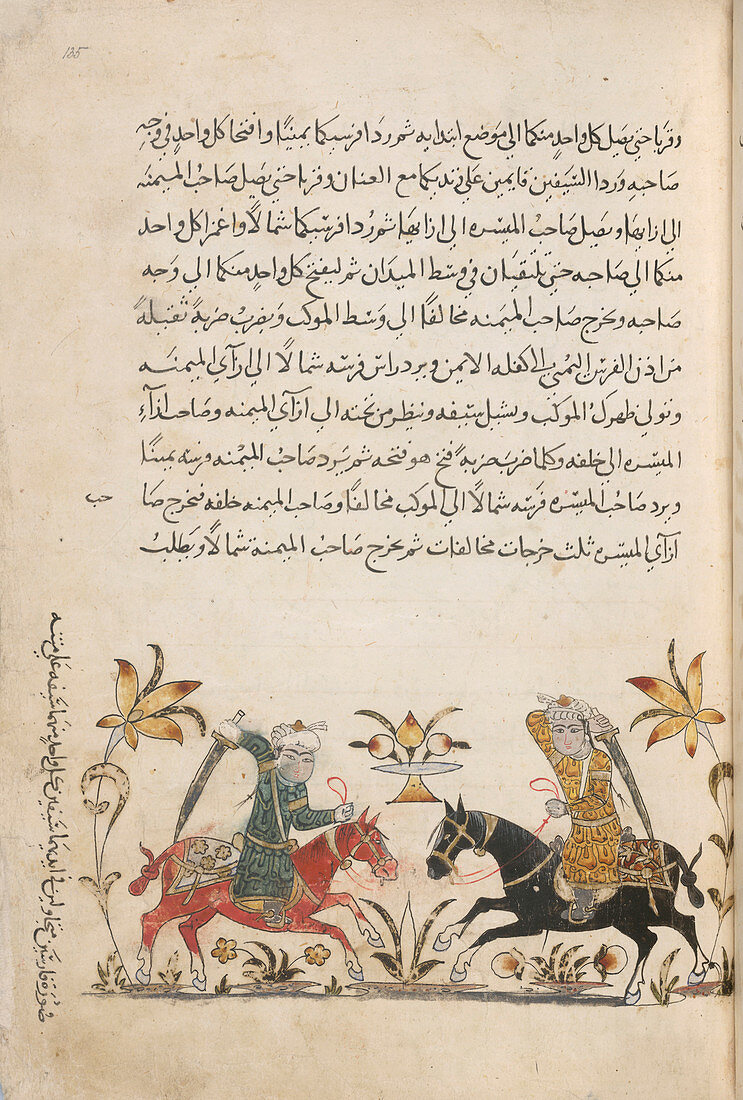 135
وقربا حتى يصل كل واحد منكما الى موضع ابتدايه ثم ردا فرسيكما يمينا وافتحا كل واحد في وجه
صاحبه وردا السيفين قايمين على زنديكما مع العنان وقربا حتى يصل صاحب الميمنه
الى ازايها ويصيل صاحب الميسره الى ازايها ثم ردا فرسيكما شمالا واغمزا كل واحد
منكما الى صاحبه حتى تلتقيان في وسط الميدان ثم ليفتح كل واحد منكما الى وجه
صاحبه ويخرج صاحب الميمنه مخالفا الى وسط الموكب ويضرب ضربة ثقيلة
من اذن الفرس اليمنى الى كفله الايمن ويرد راس فرسه شمالا الى ازآي الميمنه
وتولي ظهرك الموكب ويشيل سيفه وينظر من تحته الى ازآي الميمنه وصاحب ازآء
الميسره الى خلفه وكلما ضرب ضربة فتح هو فتحه ثم يرد صاحب الميمنه فرسه يمينا
ويرد صاحب الميسره فرسه شمالا الى الموكب مخالفا وصاحب الميمنه خلفه فتخرج صا
حب
ازآي الميسره ثلث خرجات مخالفات ثم يخرج صاحب الميمنة شمالا ويطلب
صورة فارسين متجاولين في ايديهما سيفين كل واحد منهما سيفه على متنه